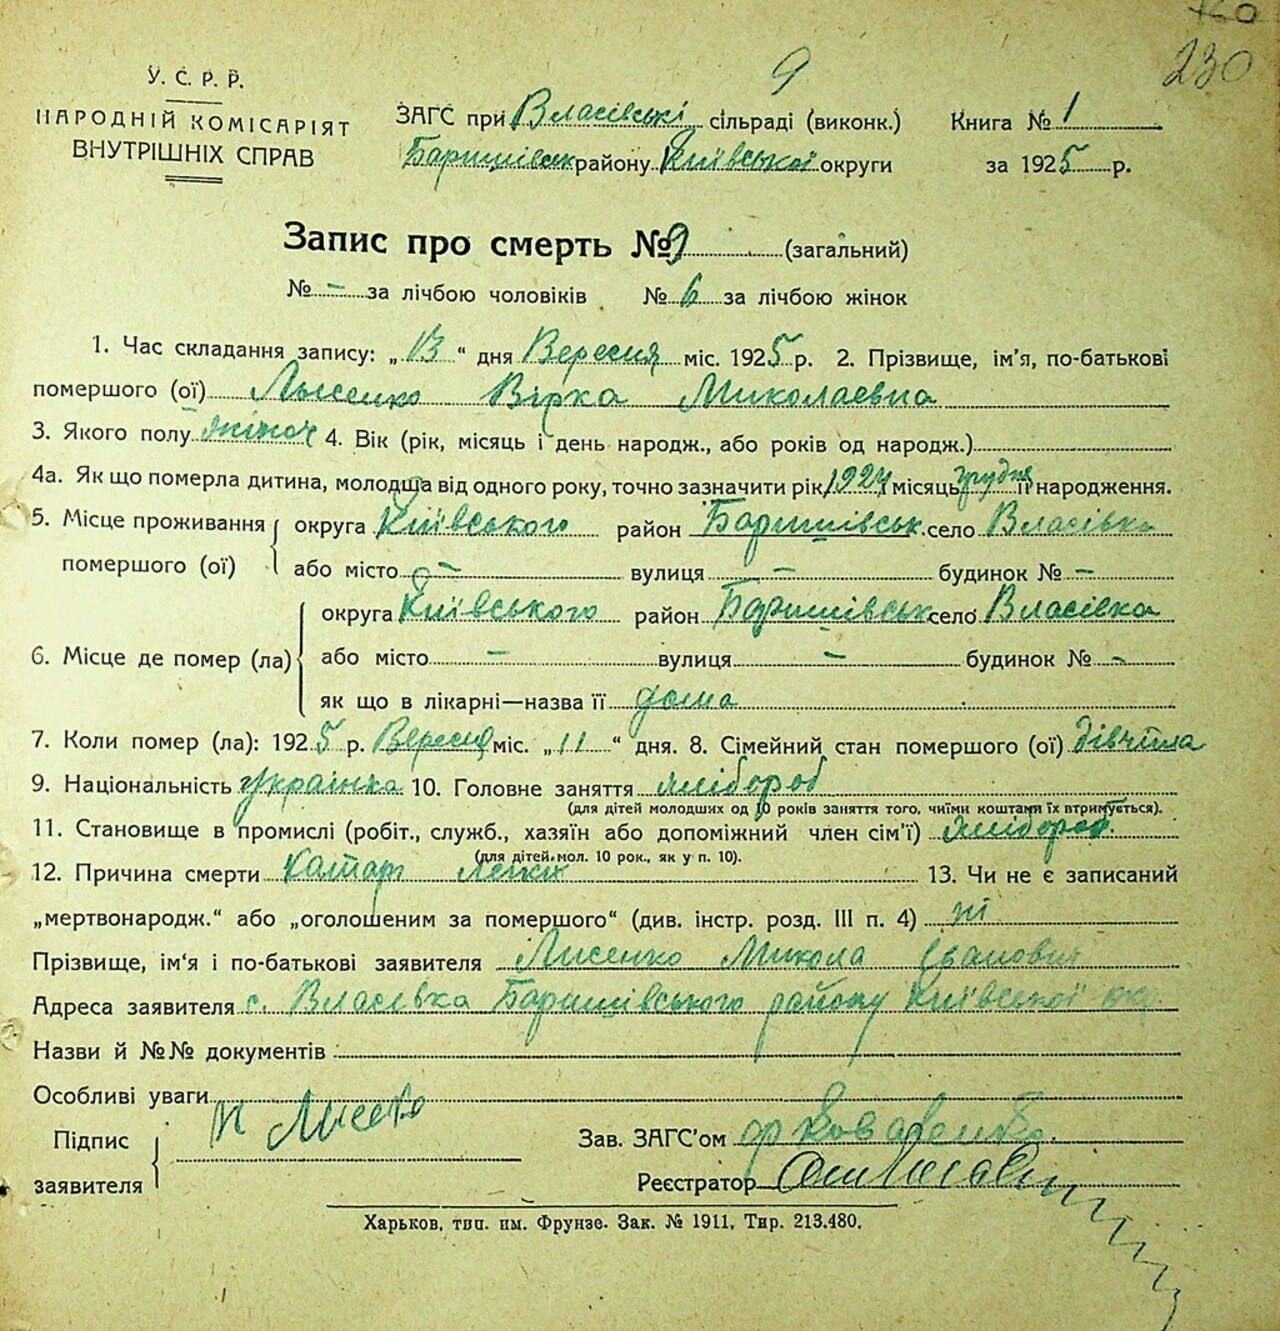 230
9
У. С. Р. Р.
НАРОДНІЙ КОМІСАРІЯТ
ВНУТРІШНІХ СПРАВ
ЗАГС при Власівські сільраді (виконк.)
Баришівськ району Київської округи
Книга № 1
за 1925 р.
Запис про смерть № 9 (загальний)
№ - за лічбою чоловіків № 6 за лічбою жінок
1. Час складання запису: „13“ дня Вересня міс. 1925 р. 2. Прізвище, ім'я, по-батькові
помершого (ої) Лысенко Вірка Миколаевна
3. Якого полу жіноч 4. Вік (рік, місяць і день народж., або років од народж.)
4а. Як що померла дитина, молодша від одного року, точно зазначити рік 1924 місяць грудня її народження.
5. Місце проживання помершого (ої) округа Київського район Баришівськ. село Власівка
або місто - вулиця - будинок № -
6. Місце де помер (ла) округа Київського район Баришівськ село Власівка
або місто - вулиця - будинок № -
як що в лікарні—назва її дома
7. Коли помер (ла): 1925 р. Вересня міс. „11“ дня. 8. Сімейний стан помершого (ої) дівчина
9. Національність українка 10. Головне заняття хлібороб
(для дітей молодших од 10 років заняття того, чиїми коштами їх втримується).
11. Становище в промислі (робіт., служб., хазяїн або допоміжний член сім'ї) хлібороб.
(для дітей мол. 10 рок., як у п. 10).
12. Причина смерти Катар легких 13. Чи не є записаний
„мертвонародж.“ або „оголошеним за помершого“ (див. інстр. розд. III п. 4) ні
Прізвище, ім'я і по-батькові заявителя Лисенко Микола Іванович
Адреса заявителя с. Власівка Баришівського району Київської окр.
Назви й №№ документів
Особливі уваги
Підпис заявителя М Лисенко
Зав. ЗАГС'ом Коваленко.
Реєстратор
Харьков, тип. им. Фрунзе. Зак. № 1911. Тир. 213.480.